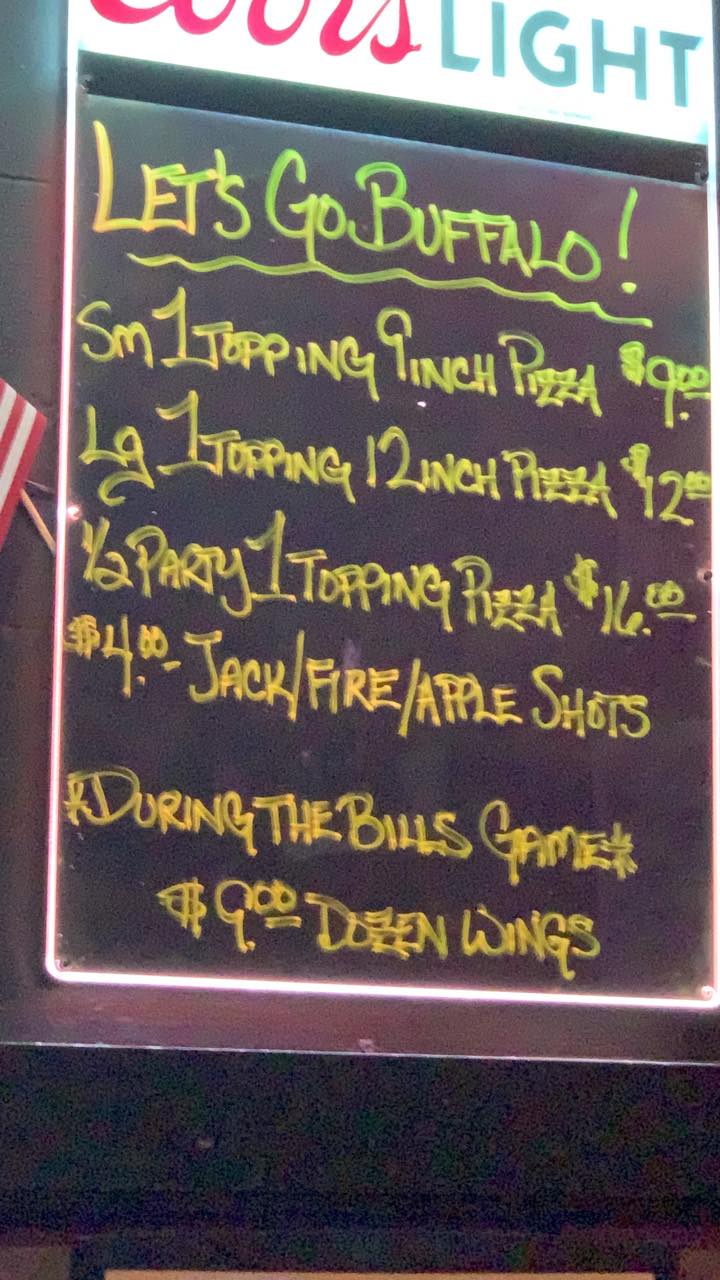 Coors LIGHT
LET'S GO BUFFALO!
Sm 1 TOPPING 9 INCH PIZZA $9.00
Lg 1 TOPPING 12 INCH PIZZA $12.00
1/2 PARTY 1 TOPPING PIZZA $16.00
$4.00 JACK/FIRE/APPLE SHOTS
*DURING THE BILLS GAME*
$9.00 DOZEN WINGS